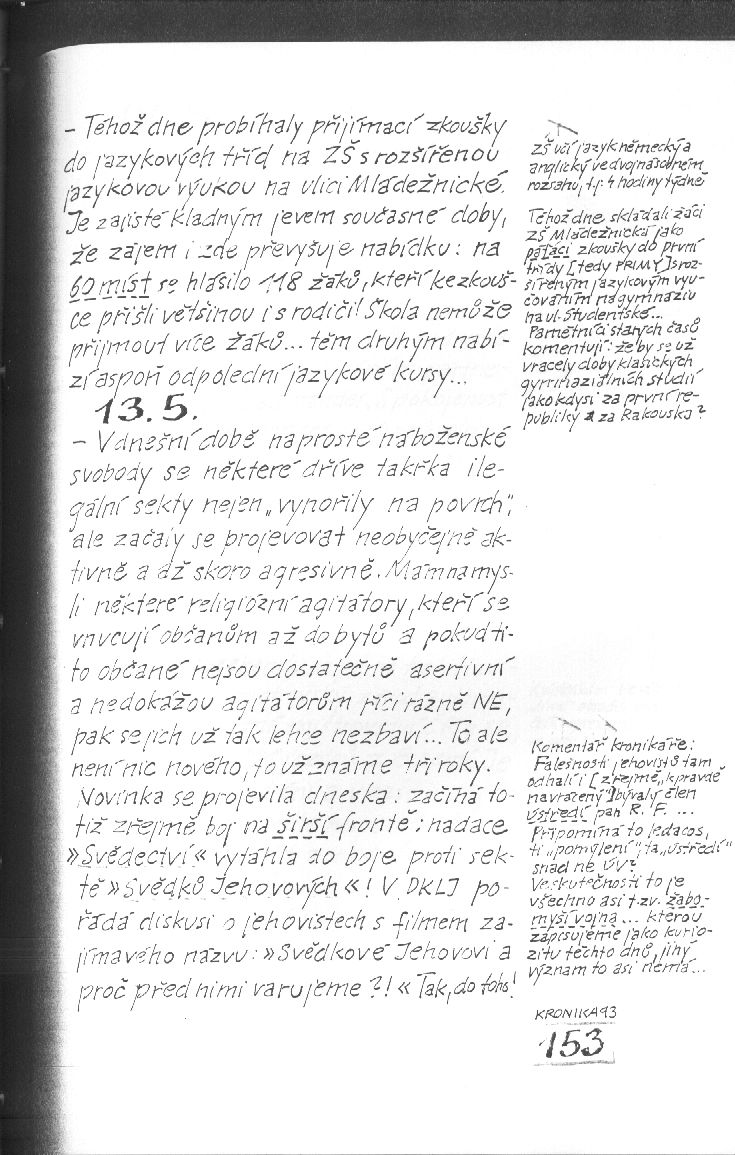 – Téhož dne probíhaly přijímací zkoušky
do jazykových tříd na ZŠ s rozšířenou
jazykovou výukou na ulici Mládežnické.
Je zajisté kladným jevem současné doby,
že zájem i zde převyšuje nabídku: na
60 míst se hlásilo 118 žáků, kteří ke zkouš-
ce přišli většinou i s rodiči! Škola nemůže
přijmout více žáků... těm druhým nabí-
zí aspoň odpolední jazykové kursy...
13.5.
– V dnešní době naprosté náboženské
svobody se některé dříve takřka ile-
gální sekty nejen „vynořily na povrch“,
ale začaly se projevovat neobyčejně ak-
tivně a až skoro agresivně. Mám na mys-
li některé religiózní agitátory, kteří se
vnucují občanům až do bytů a pokud ti-
to občané nejsou dostatečně asertivní
a nedokážou agitátorům říci rázně NE,
pak se jich už tak lehce nezbaví... To ale
není nic nového, to už známe tři roky.
Novinka se projevila dneska: začíná to-
tiž zřejmě boj na širší frontě: nadace
»Svědectví« vytáhla do boje proti sek-
tě »Svědků Jehovových«! V DKLJ po-
řádá diskusi o jehovistech s filmem za-
jímavého názvu: »Svědkové Jehovovi a
proč před nimi varujeme?!« Tak, do toho!
ZŠ učí jazyk německý a
anglický ve dvojnásobném
rozsahu, t.j. 4 hodiny týdně
Téhož dne skládali žáci
ZŠ Mládežnická jako
páťáci zkoušky do první
třídy [tedy PRIMY] s roz-
šířeným jazykovým vyu-
čováním na gymnáziu
na ul. Studentské...
Pamětníci starých časů
komentují: že by se už
vracely doby klasických
gymnaziálních studií
jako kdysi za první re-
publiky a za Rakouska?
Komentář kronikáře:
Falešnosti jehovistů tam
odhalí i [zřejmě „k pravdě
navrácený“] bývalý člen
ústředí pan R. F. ...
Připomíná to ledacos,
ti „pomýlení“, ta „ústředí“
snad ne ÚV?
Ve skutečnosti to je
všechno asi t.zv. žabo-
myší vojna... kterou
zapisujeme jako kurio-
zitu těchto dnů, jiný
význam to asi nemá...
KRONIKA 93
153